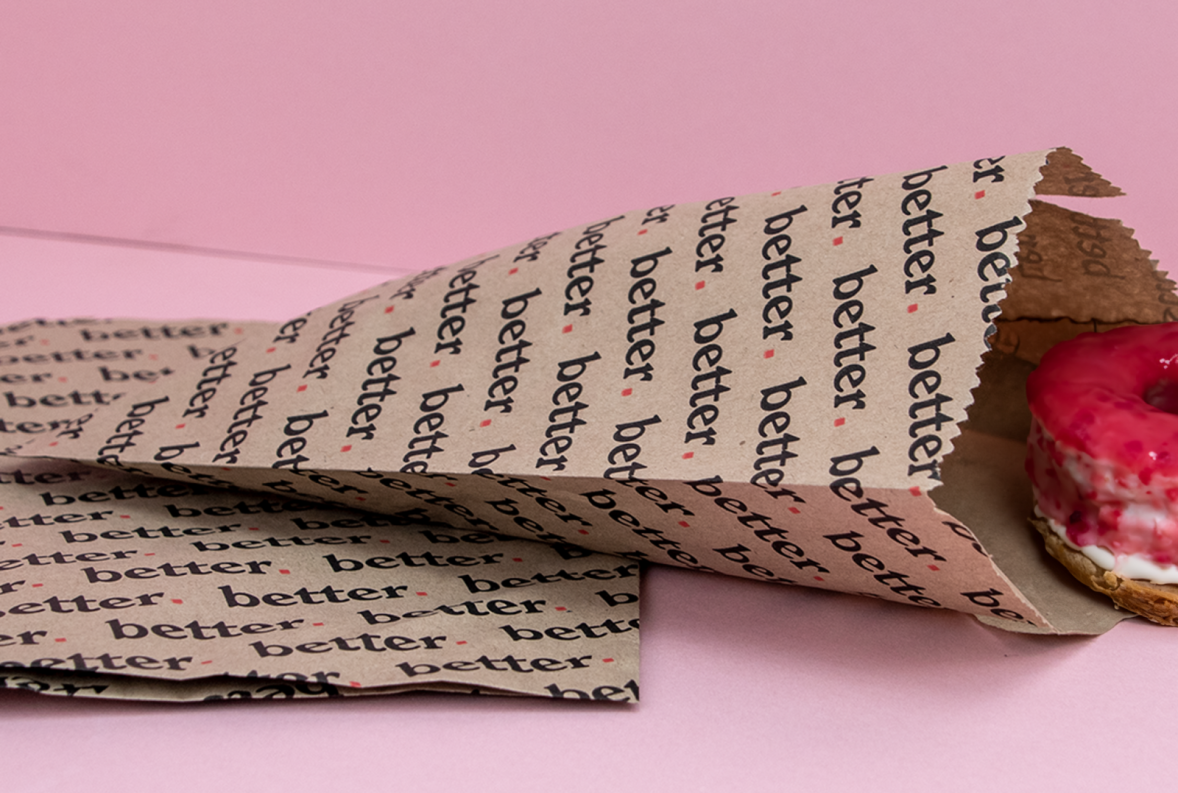 better.
better.
er. be
bett
better
etter.
better
er. bet
better.
er. better.
better. bette
etter. better
er. better.
better. better
er. better. bet
etter. better.
better. better.
tter. better. better.
better. better
er. bet
better.
better. better.
better. better.
better. better. better
better. better. bett
better. better.
better. be